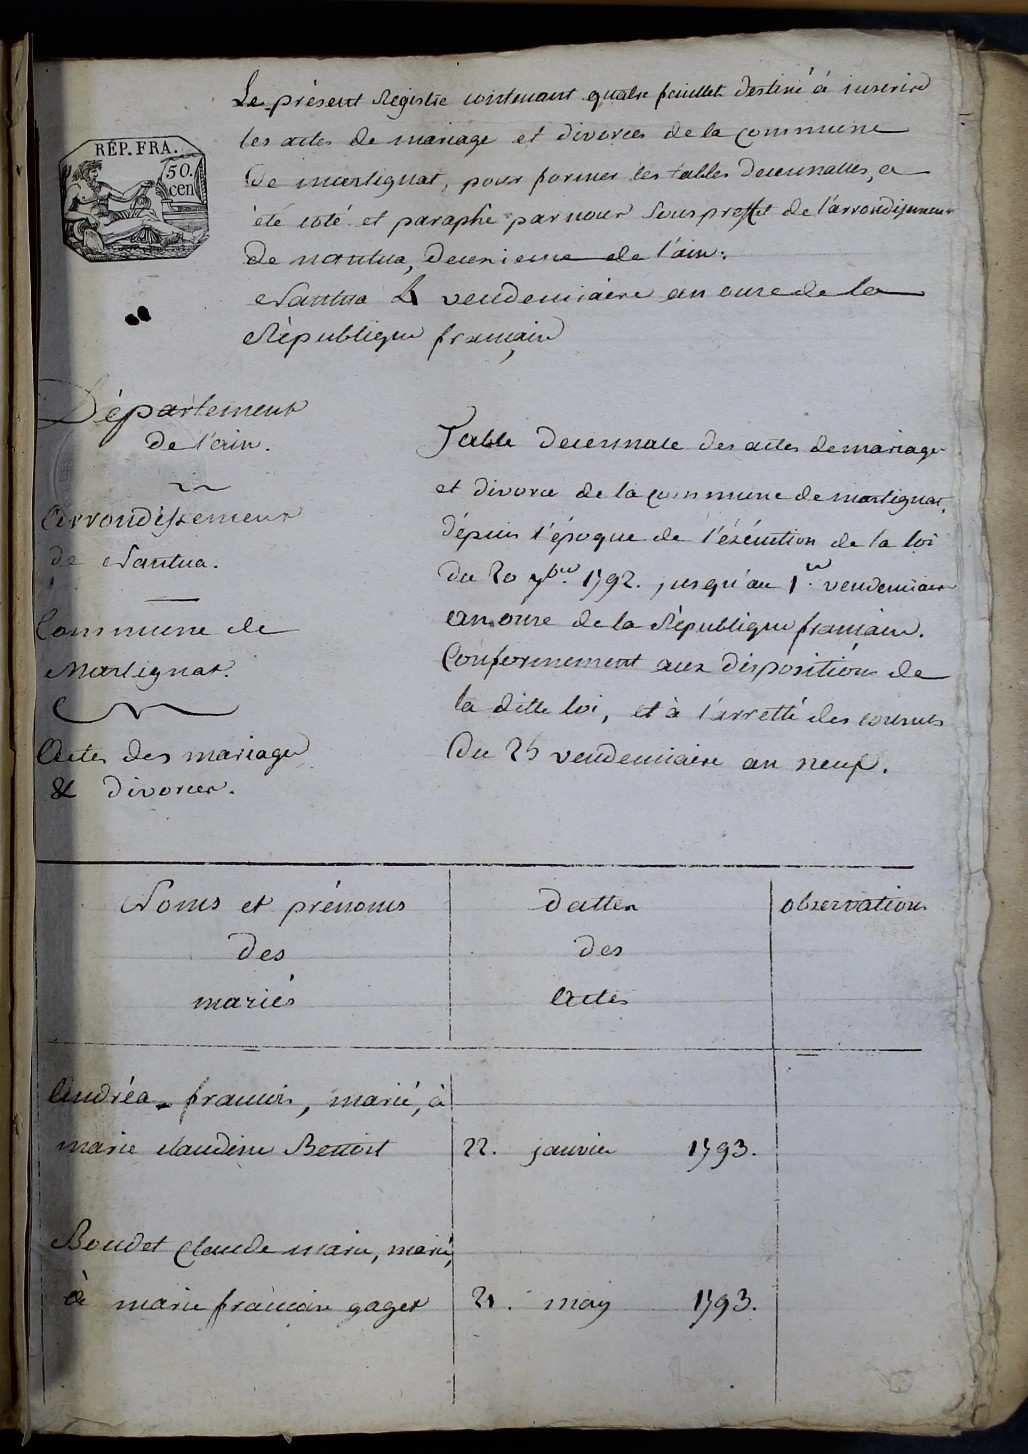 Le présent Registre contenant quatre feuillet destiné à inscrire
les actes de mariage et divorces de la commune
De martignat, pour former les tables decennalles, a
été coté et paraphé par nous Sous prefet de l'arrondissement
de nantua, de l'ain.
Nantua vendemiaire an onze de la
République française
RÉP. FRA.
50.
cen
Département
de l'ain.
Arrondissement
de Nantua.
Commune de
Martignat.
Actes des mariages
& divorces.
Table decennale des actes de mariage
et divorce de la commune de martignat,
dépuis l'époque de l'éxécution de la loi
du 20 7bre 1792. jusqu'au 1er vendemiaire
an onze de la République française.
Conformement aux dispositions de
la ditte loi, et à l'arretté des consuls
Du 25 vendemiaire an neuf.
Noms et prénoms
des
mariés
dattes
des
Actes
observations
Andréa francois, marié, à
marie claudine Benoit
22. janvier 1793.
Boudet Claude marie, marié,
à marie francoise gaget
21. may 1793.